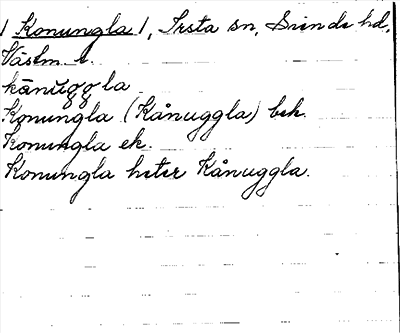 / Konungla /, Irsta sn, Siende hd,
Västm. l.
kånuggla
Konungla (Kånuggla) bek.
Konungla ek.
Konungla heter Kånuggla.